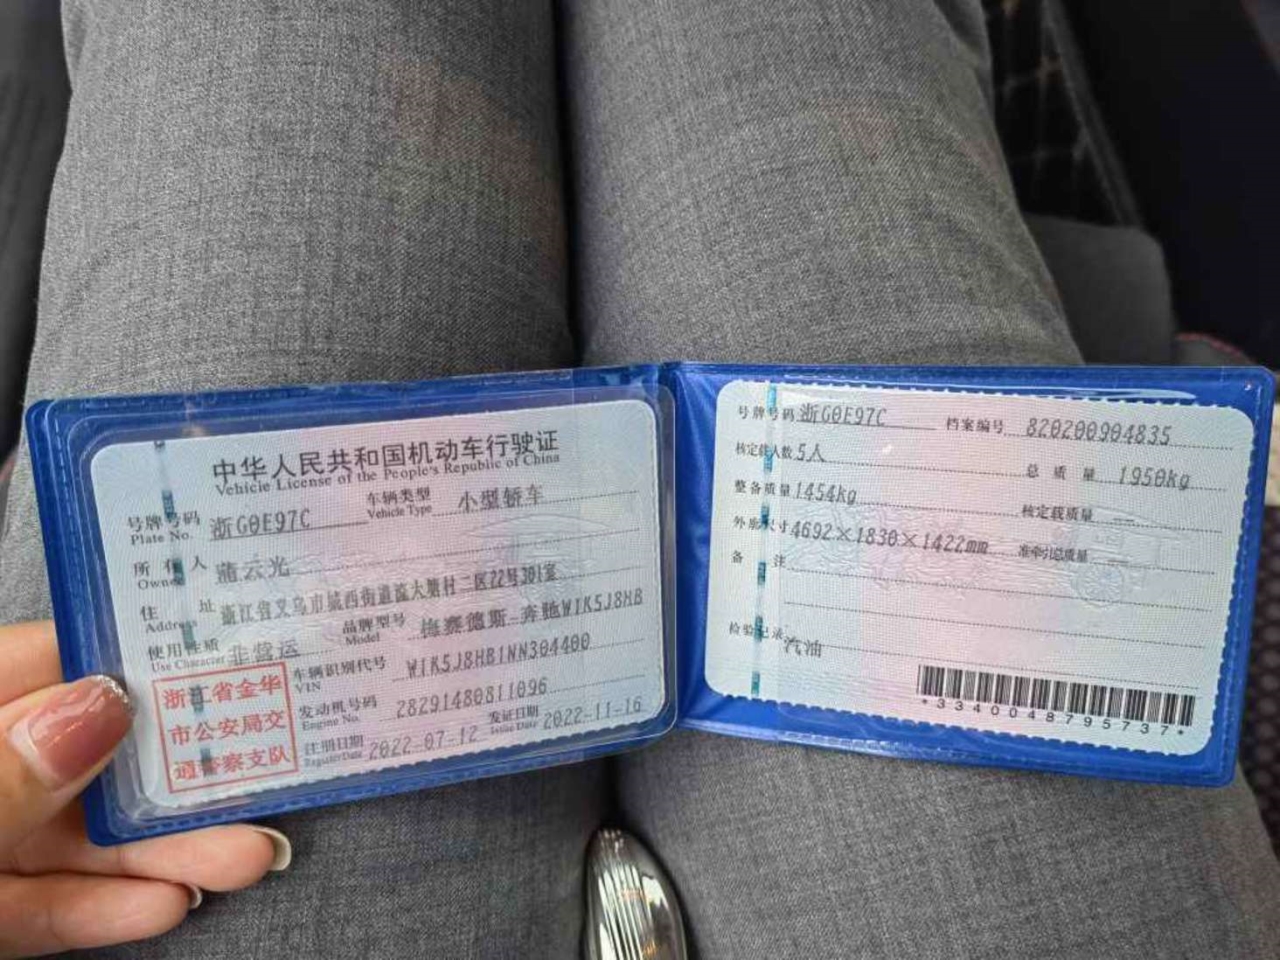 中华人民共和国机动车行驶证
Vehicle License of the People's Republic of China
号牌号码 浙G0E97C 车辆类型 小型轿车
Plate No. Vehicle Type
所有人 蒲云光
Owner
住址 浙江省义乌市城西街道流大塘村二区22号301室
Address
使用性质 非营运 品牌型号 梅赛德斯-奔驰W1K5J8HB
Use Character Model
浙江省金华
市公安局交
通警察支队
车辆识别代号 W1K5J8HB1NN304400
VIN
发动机号码 28291480811096
Engine No.
注册日期 2022-07-12 发证日期 2022-11-16
Register Date Issue Date
号牌号码 浙G0E97C 档案编号 820200904835
核定载人数 5人 总质量 1950kg
整备质量 1454kg 核定载质量 --
外廓尺寸 4692×1830×1422mm 准牵引总质量 --
备注
检验记录 汽油
*3340048795737*